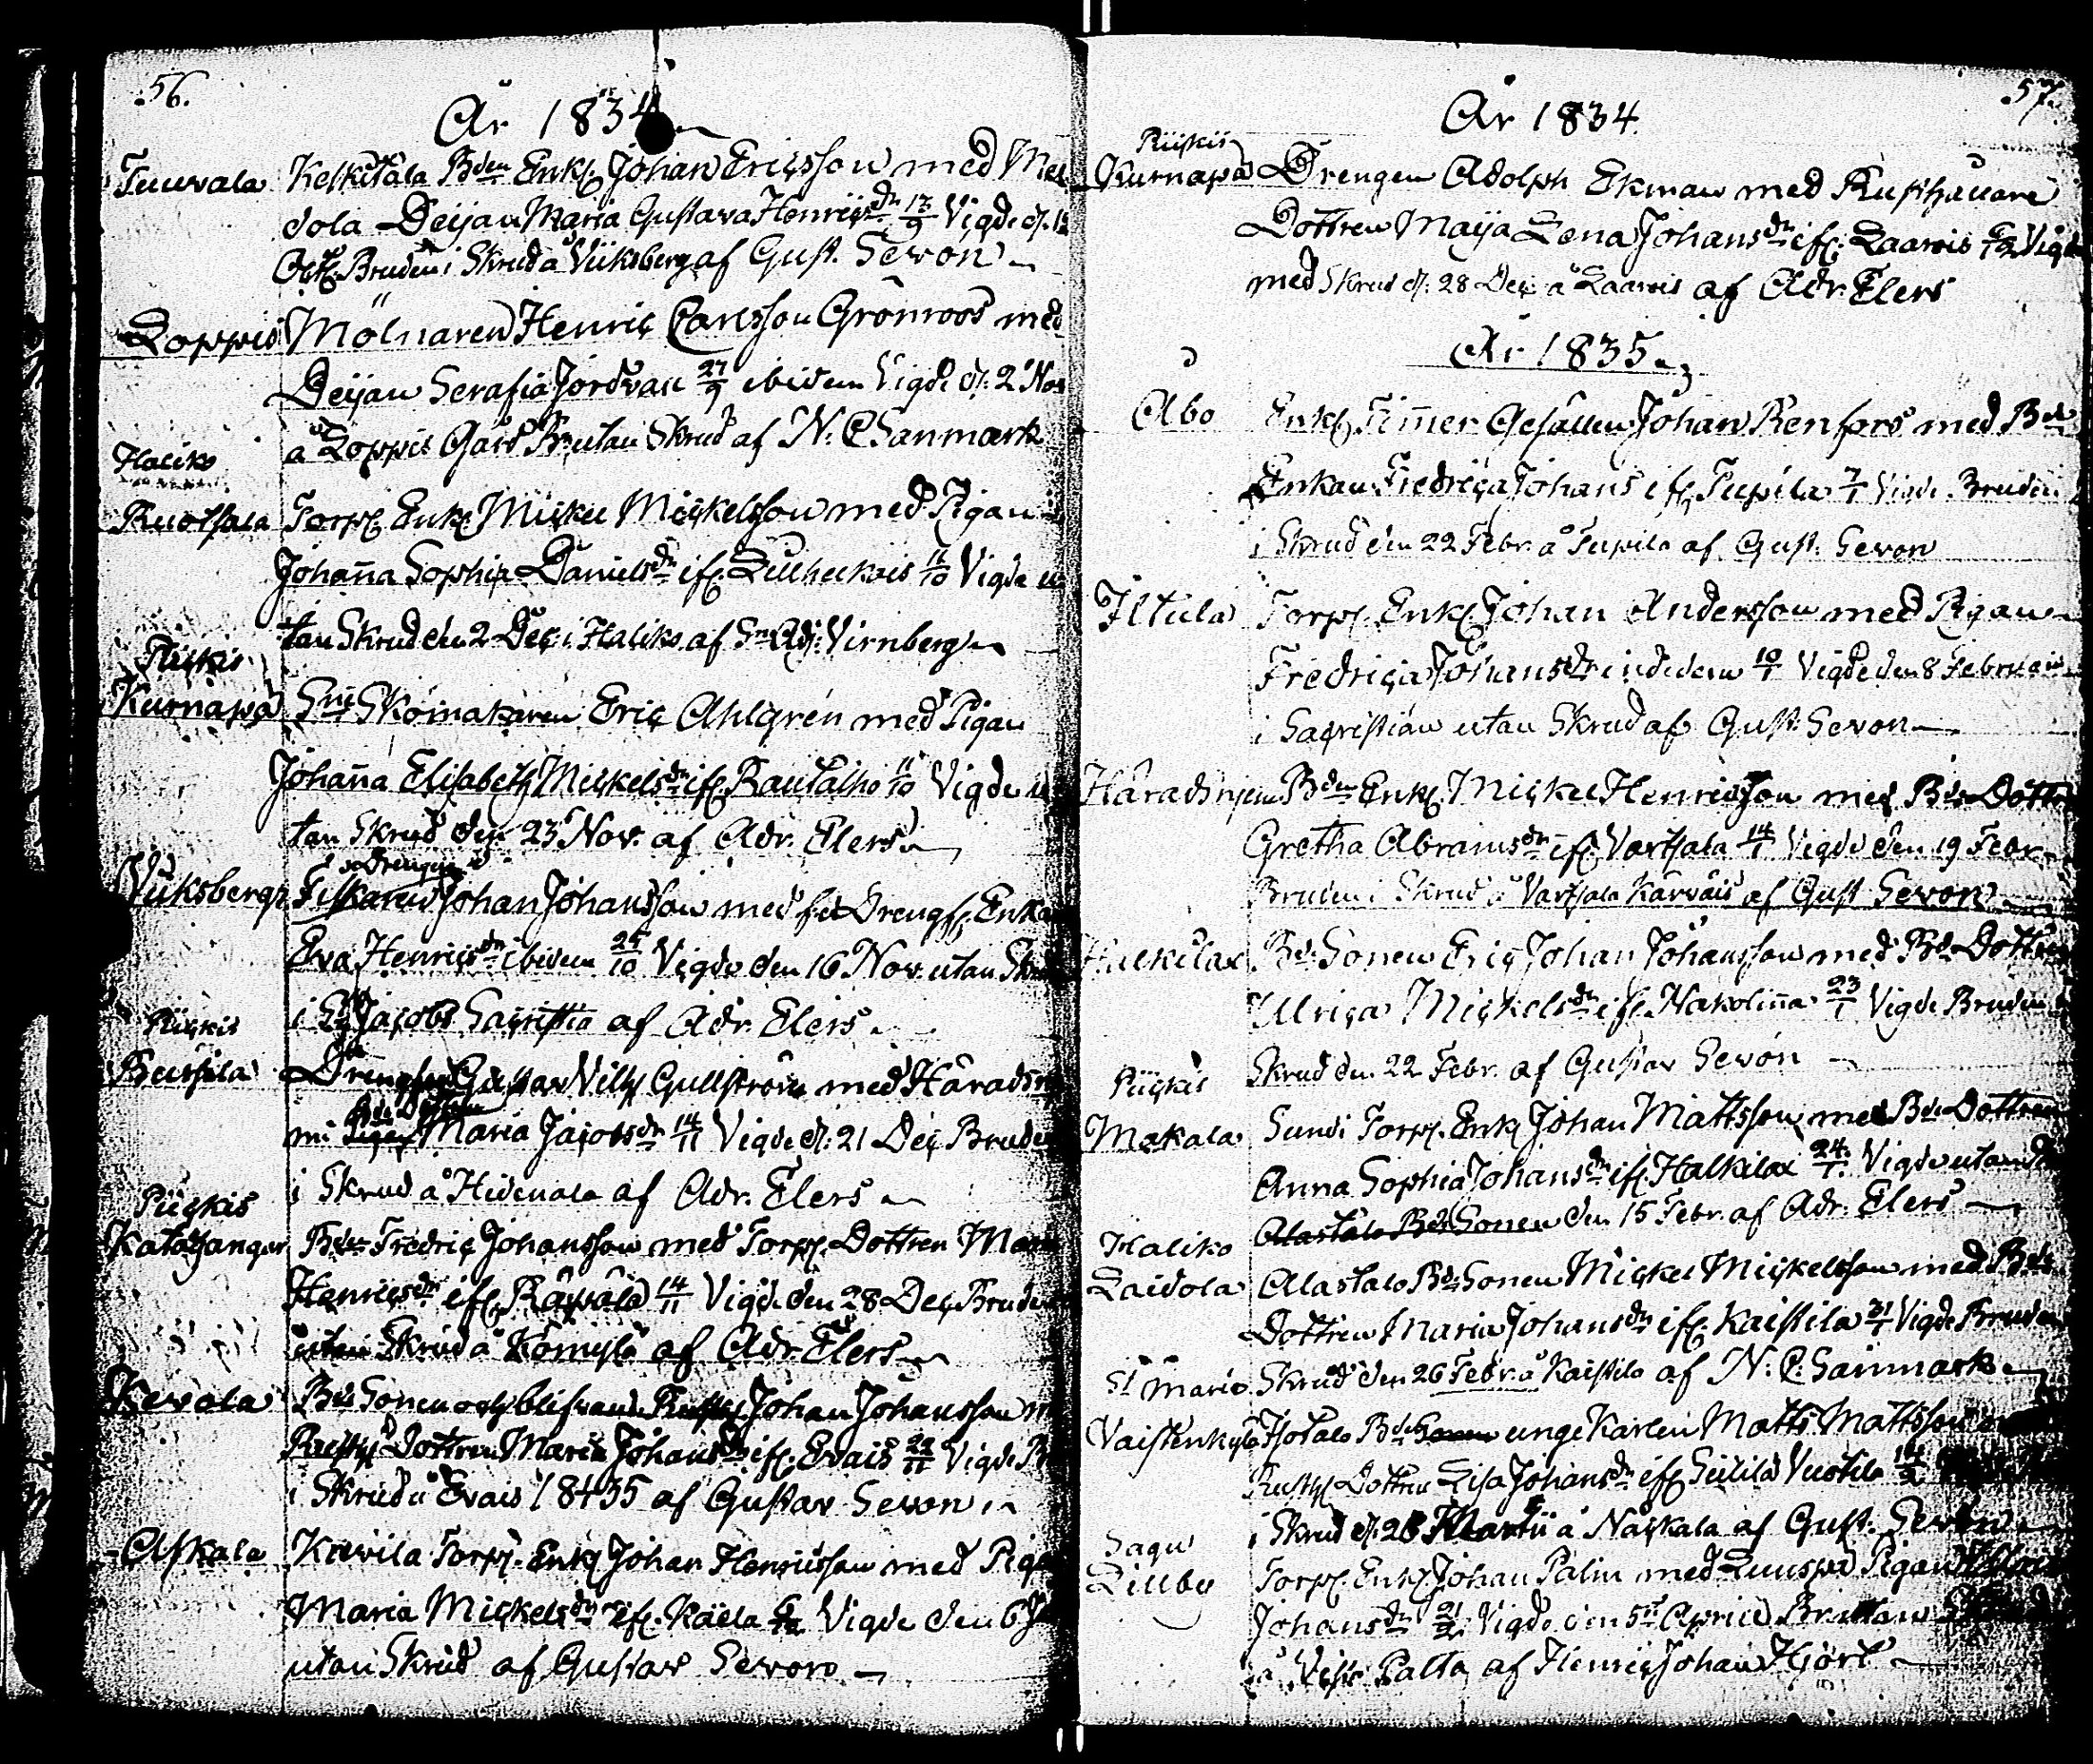 56.
År 1834
Tuuvala Keskitalo Bden Enkl. Johan Ericsson med Mel
dola Deijan Maria Gustava Henricsdr 13/9 Vigde d.
Oct. Bruden i Skrud å Viiksberg af Gust. Sevón
Loppis Mölnaren Henric Carlsson Grönroos med
Deijan Serafia Jordvall 27/9 ibidem Vigde d. 2 Nov
å Loppis Gård Br. utan Skrud af N. C. Sanmark
Haliko
Ruotsala Torp. Enkl. Mickel Mickelsson med Pigan
Johanna Sophia Danielsdr ifr. 11/10 Vigde u
tan Skrud den 2 Dec. i Haliko af Adj. Virnberg
Piickis
Kurnapä Skomakaren Eric Ahlgrén med Pigan
Johanna Elisabeth Mickelsdr ifr. Rautalho 11/10 Vigde u
tan Skrud den 23 Nov. af Adr. Elers
Drengen
Viiksberg Fiskaren Johan Johansson med Enkan
Eva Henricsdr ibidem 25/10 Vigde den 16 Nov. utan Skrud
i St Jacobs Sacristia af Adr. Elers
Piickis
Bussila Gustav Gullström med Härads
Bde Dottren
mi Pigan Maria Jacobsdr 14/11 Vigde d: 21 Dec Bruden
i Skrud å Hidenala af Adr. Elers
Piickis
Bden Fredric Johansson med Torp. Dottren Maria
Henricsdr ifr. Räpälä 14/11 Vigde den 28 Dec Bruden
utan Skrud å Kömylä af Adr Elers
Kevola Bde Sonen och blifvande Rusth. Johan Johansson m
Rusth. Dottren Maria Johansdr ifr. Evais 22/11 Vigde
i Skrud å Evais 1835 af Gustav Sevon
Askala Torp. Enkl Johan Henricsson med Piga
Maria Mickelsdr ifr. Käela 6/12 Vigde den 6 J
utan Skrud af Gustav Sevon
57.
År 1834.
Piickis
Kurnapä Drengen Adolph Ekman med Rusthållare
Dottren Maija Lena Johansdr ifr. Laarois 6/12 Vigde
med Skrud d: 28 Dec. å Laarois af Adr. Elers
År 1835
Åbo Enkl. Timmer Gesällen Johan Renfors med Bde
Enkan Fredrica Johans ifr Tupila 7/1 Vigde Bruden
i Skrud den 22 Febr. å Tupila af Gust. Sevon
Iltula Torp. Enkl. Johan Andersson med Pigan
Fredrica Johansdr indidem 10/1 Vigde den 8 Februarii
i Sacristian utan Skrud af Gust. Sevon
Häradsnjemi Bden Enkl Mickel Henricsson med Bde Dottren
Gretha Abramsdr ifr. Vartsala 14/1 Vigde den 19 Febr
Bruden i Skrud å Vartsala Kärväis af Gust Sevon
Halkilax Bde Sonen Eric Johan Johansson med Bde Dottren
Ulrica Mickelsdr ifr. Nakolinna 23/1 Vigde Bruden
Skrud den 22 Febr. af Gustav Sevón
Piickis
Makala Sundi Torp. Enkl Johan Mattsson med Bde Dottren
Anna Sophia Johansdr ifr. Halkilax 24/1 Vigde utan
Alastalo Bde Sonen den 15 Febr. af Adr. Elers
Haliko
Laidola Alastalo Bde Sonen Mickel Mickelsson med Bde
Dottren Maria Johansdr ifr. Kaistila 31/1 Vigde Bruden
Skrud den 26 Febr. å Kaistila af N. C. Sanmark
St Marie
Vaistenkylä Isotalo Bde Sonen unge Karlen Matts Mattsson
Rusth. Dottren Lisa Johansdr ifr Vuotila 14/2
i Skrud d. 28 Martii å Näckala af Gust. Sevon
Sagu
Lillby Torp. Enkl. Johan Palin med Pigan
Johansdr 21/2 Vigde den 5te April Br. utan
å af Henric Johan Hjort